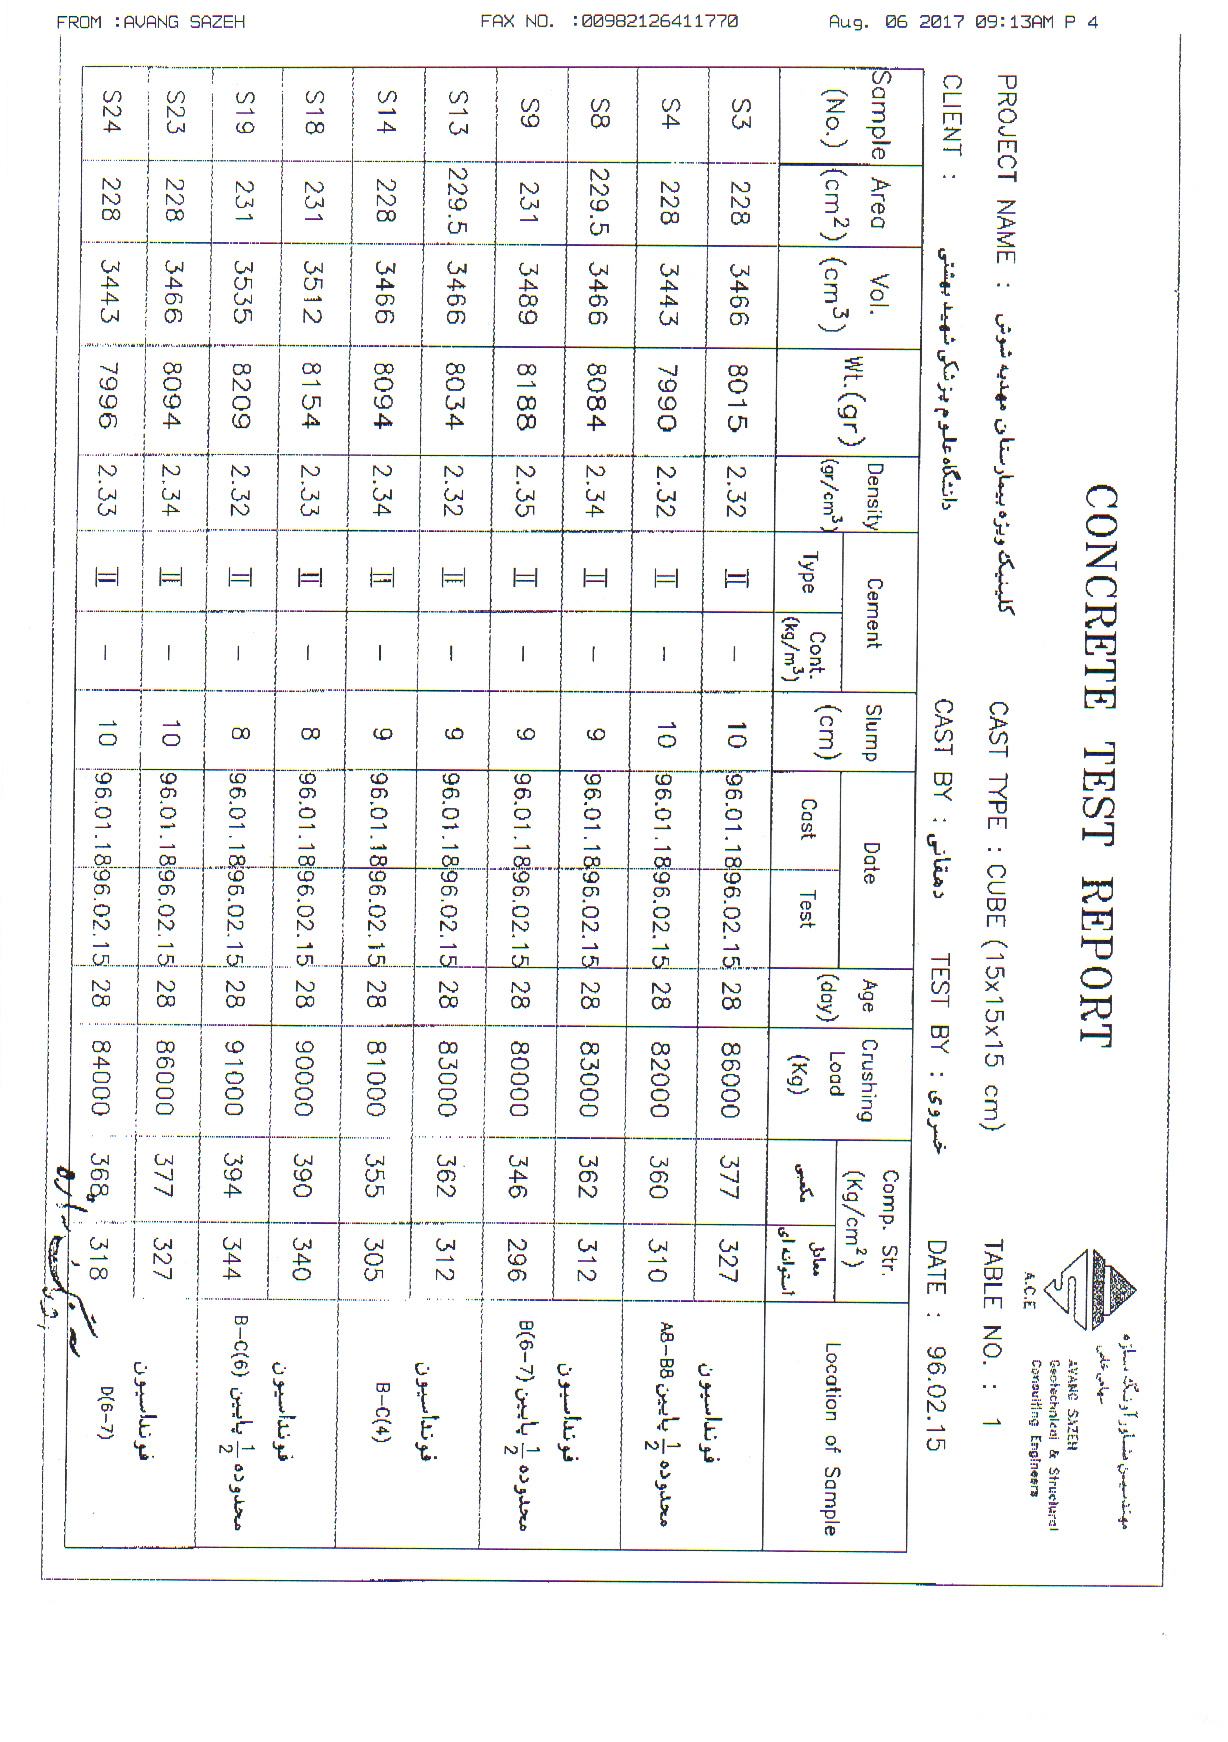 FROM :AVANG SAZEH FAX NO. :00982126411770 Aug. 06 2017 09:13AM P 4
CONCRETE TEST REPORT
مهندسین مشاور آونگ سازه
سهامی خاص
AVANG SAZEH
Geotechnical & Structural
Consulting Engineers
A.C.E
PROJECT NAME : کلینیک ویژه بیمارستان مهدیه شوش CAST TYPE : CUBE (15x15x15 cm) TABLE NO. : 1
CLIENT : دانشگاه علوم پزشکی شهید بهشتی CAST BY : دهقانی TEST BY : خسروی DATE : 96.02.15
Sample (No.) Area (cm²) Vol. (cm³) Wt.(gr) Density (gr/cm³) Cement Type Cont. (kg/m³) Slump (cm) Date Cast Test Age (day) Crushing Load (Kg) Comp. Str. (Kg/cm²) مکعبی معادل استوانه ای Location of Sample
S3 228 3466 8015 2.32 II – 10 96.01.18 96.02.15 28 86000 377 327 فونداسیون
S4 228 3443 7990 2.32 II – 10 96.01.18 96.02.15 28 82000 360 310 محدوده 1/2 پایین A8-B8
S8 229.5 3466 8084 2.34 II – 9 96.01.18 96.02.15 28 83000 362 312 فونداسیون
S9 231 3489 8188 2.35 II – 9 96.01.18 96.02.15 28 80000 346 296 محدوده 1/2 پایین B(6-7)
S13 229.5 3466 8034 2.32 II – 9 96.01.18 96.02.15 28 83000 362 312 فونداسیون
S14 228 3466 8094 2.34 II – 9 96.01.18 96.02.15 28 81000 355 305 B-C(4)
S18 231 3512 8154 2.33 II – 8 96.01.18 96.02.15 28 90000 390 340 فونداسیون
S19 231 3535 8209 2.32 II – 8 96.01.18 96.02.15 28 91000 394 344 محدوده 1/2 پایین B-C(6)
S23 228 3466 8094 2.34 II – 10 96.01.18 96.02.15 28 86000 377 327 فونداسیون
S24 228 3443 7996 2.33 II – 10 96.01.18 96.02.15 28 84000 368 318 D(6-7)